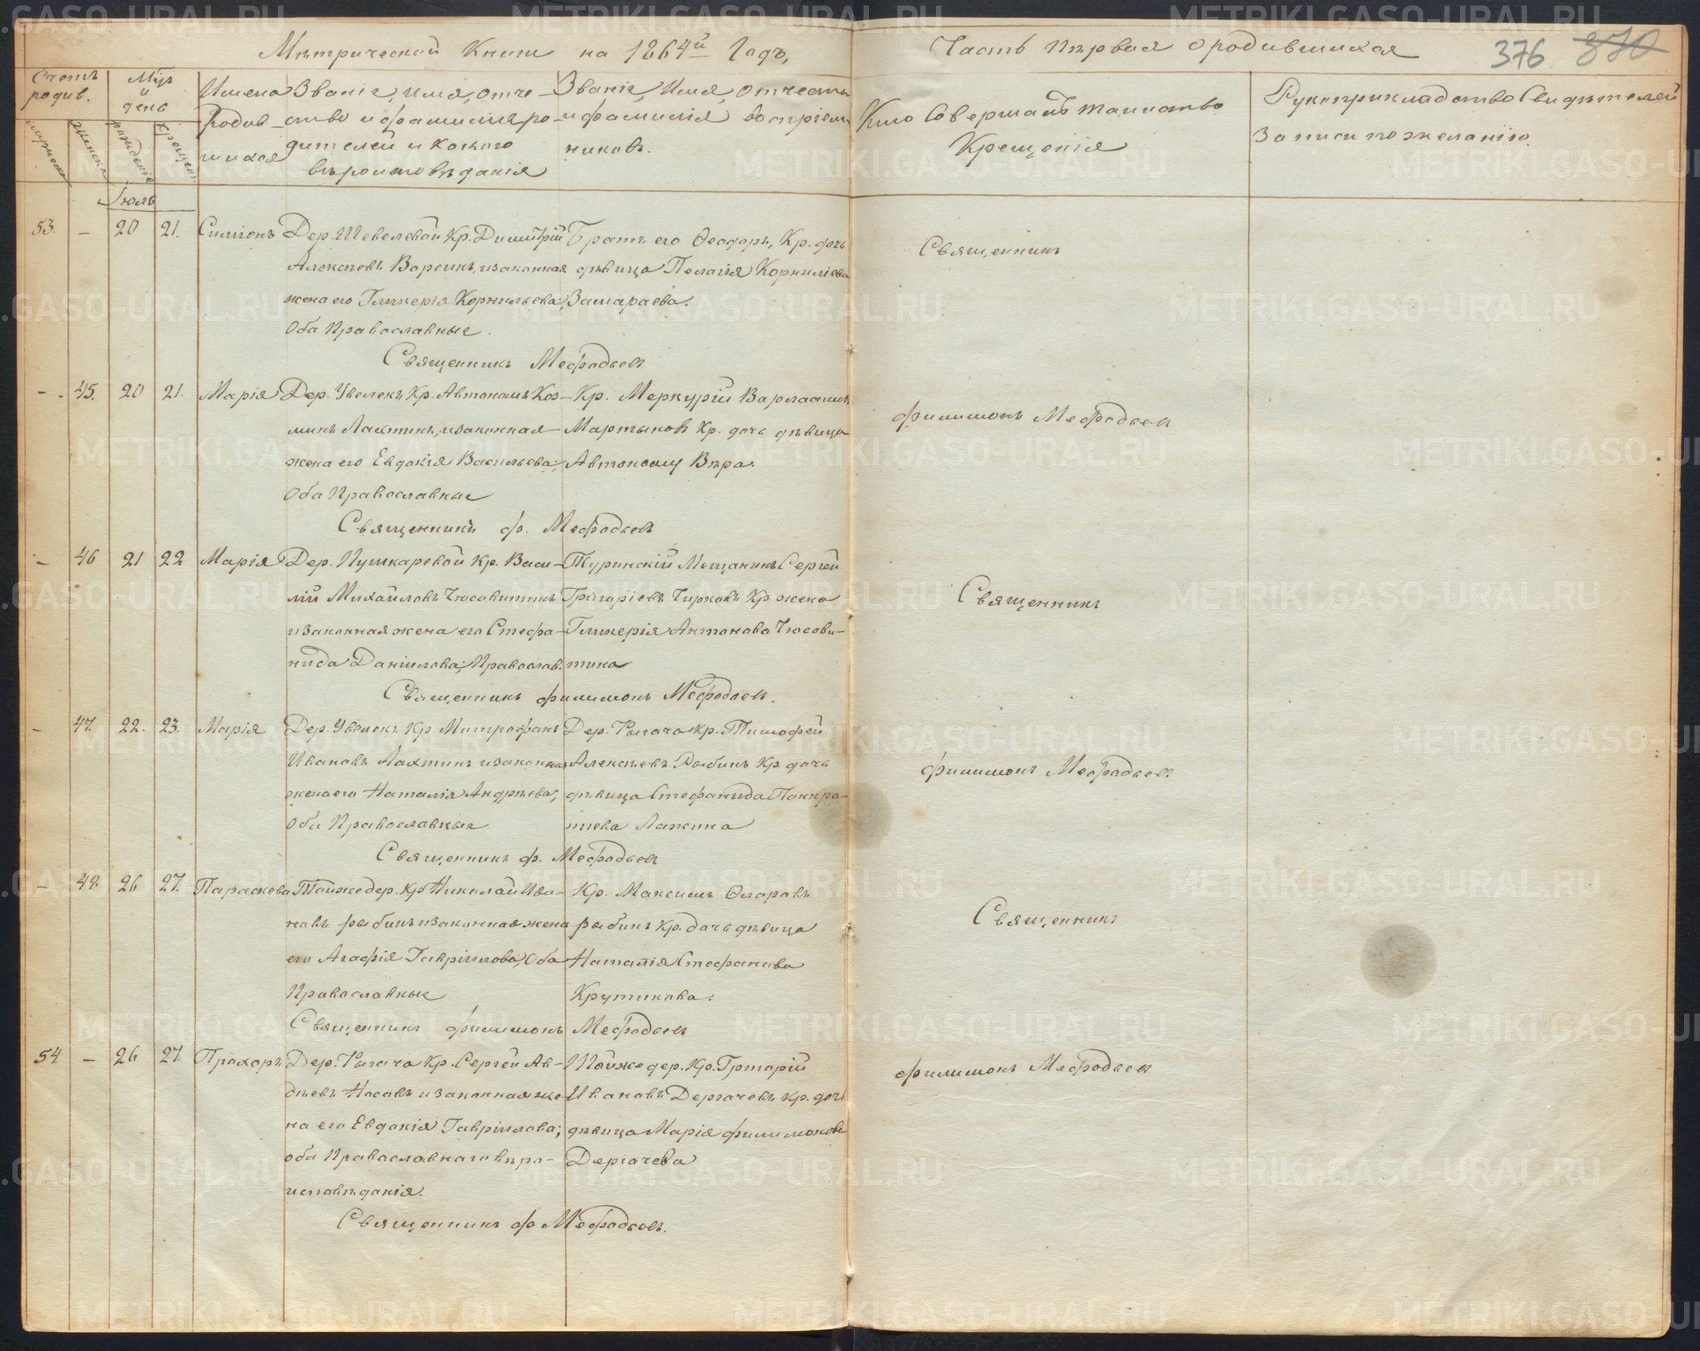 Метрической Книги на 1864й Годъ,
Часть Первая о родившихся
376 370
Счетъ родив.
Мѣсяцъ и день
мужеска
женска
рожденія
крещенія
Имена Родив-
шихся
Званіе, имя, отче-
ство и фамилія ро-
дителей и какого
вѣроисповѣданія
Званіе, Имя, отчество
и фамилія воспріем-
никовъ.
Кто Совершалъ таинство
Крещенія
Рукоприкладство Свидѣтелей
Записи по желанію.
Іюль
53. – 20 21. Симеонъ Дер. Шевелевой Кр. Димитрій Братъ его Ѳеодоръ, Кр. дочь
Алексѣевъ Ворсинъ, и законная дѣвица Пелагія Корниліева
жена его Гликерія Корнильева, Замараева.
Оба Православные.
Священникъ Мефодьевъ
Священникъ
– 45. 20 21. Марія Дер. Увелекъ Кр. Автономъ Коз- Кр. Меркурій Варлаамовъ
минъ Лахтинъ, и законная Мартыновъ Кр. дочь дѣвица
жена его Евдокія Васильева; Автоному Вѣра.
Оба Православные
Священникъ ф. Мефодьевъ
филимонъ Мефодьевъ
– 46 21 22 Марія Дер. Пушкаревой Кр. Васи- Туринскій Мѣщанинъ Сергей
лій Михайловъ Чюсовитинъ Григорьевъ Чирковъ Кр. жена
и законная жена его Стефа- Гликерія Антонова Чюсови-
нида Даніилова; Православ. тина
Священникъ филимонъ Мефодьевъ.
Священникъ
– 47. 22. 23. Марія Дер. Увелекъ Кр Митрофанъ Дер. Рагача Кр. Тимофей
Ивановъ Лахтинъ и законная Алексѣевъ Рыбинъ Кр. дочь
жена его Наталія Андрѣева; дѣвица Стефанида Панкра-
Оба Православные тиева Лапина
Священникъ ф. Мефодьевъ
филимонъ Мефодьевъ
– 48. 26 27. Параскева Тойже дер. Кр Николай Ива- Кр. Максимъ
новъ рыбинъ и законная жена рыбинъ Кр. дочь дѣвица
его Агафія Гавріилова, Оба Наталія Стефанова
Православные Крутикова.
Священникъ филимонъ Мефодьевъ
Священникъ
54 – 26 27. Прохоръ Дер. Рагача Кр. Сергей Ав- Тойже дер. Кр. Григорій
дѣевъ Носовъ и законная же- Ивановъ Дергачевъ Кр. дочь
на его Евдокія Гавріилова; дѣвица Марія филимонова
оба Православнаго вѣро- Дергачева
исповѣданія.
Священникъ ф Мефодьевъ.
филимонъ Мефодьевъ
METRIKI.GASO-URAL.RU